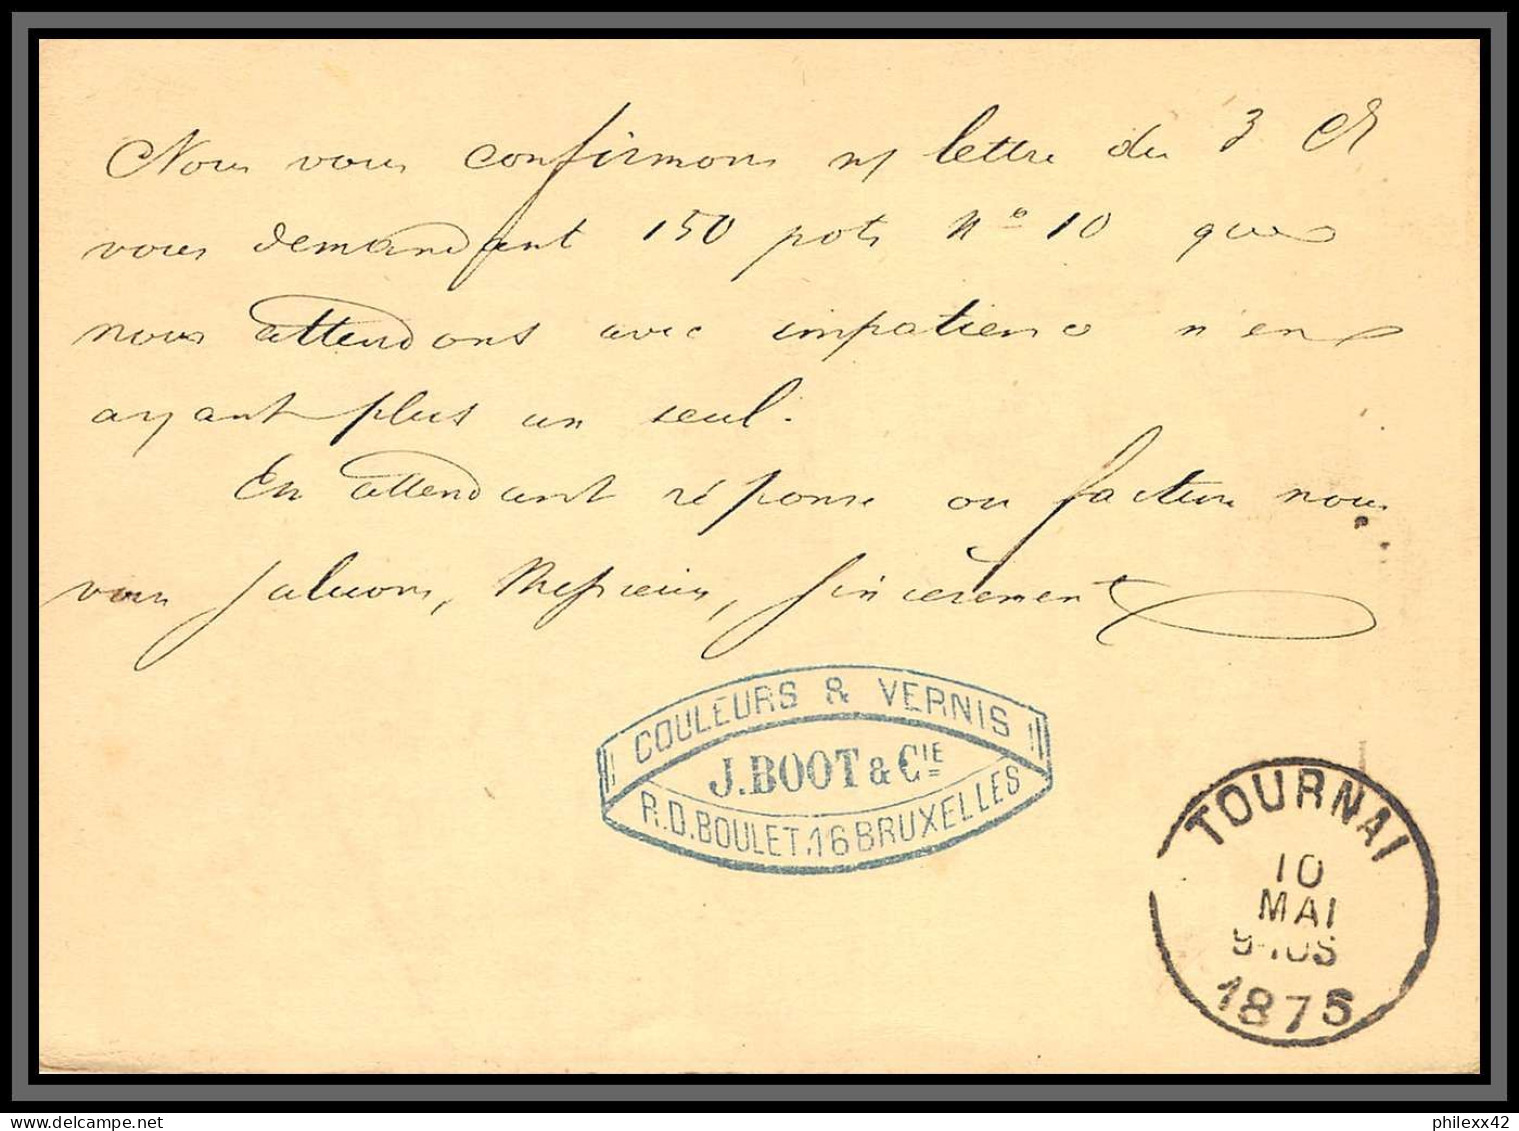 Nous vous confirmons n/ lettre du 3 ct
vous demandant 150 pots No 10 que
nous attendons avec impatience n'en
ayant plus un seul.
En attendant réponse ou facture nous
vous saluons, Messieurs, sincèrement
COULEURS & VERNIS
J. BOOT & CIE
R.D.BOULET.16 BRUXELLES
TOURNAI
10
MAI
9-10S
1875
philexx42